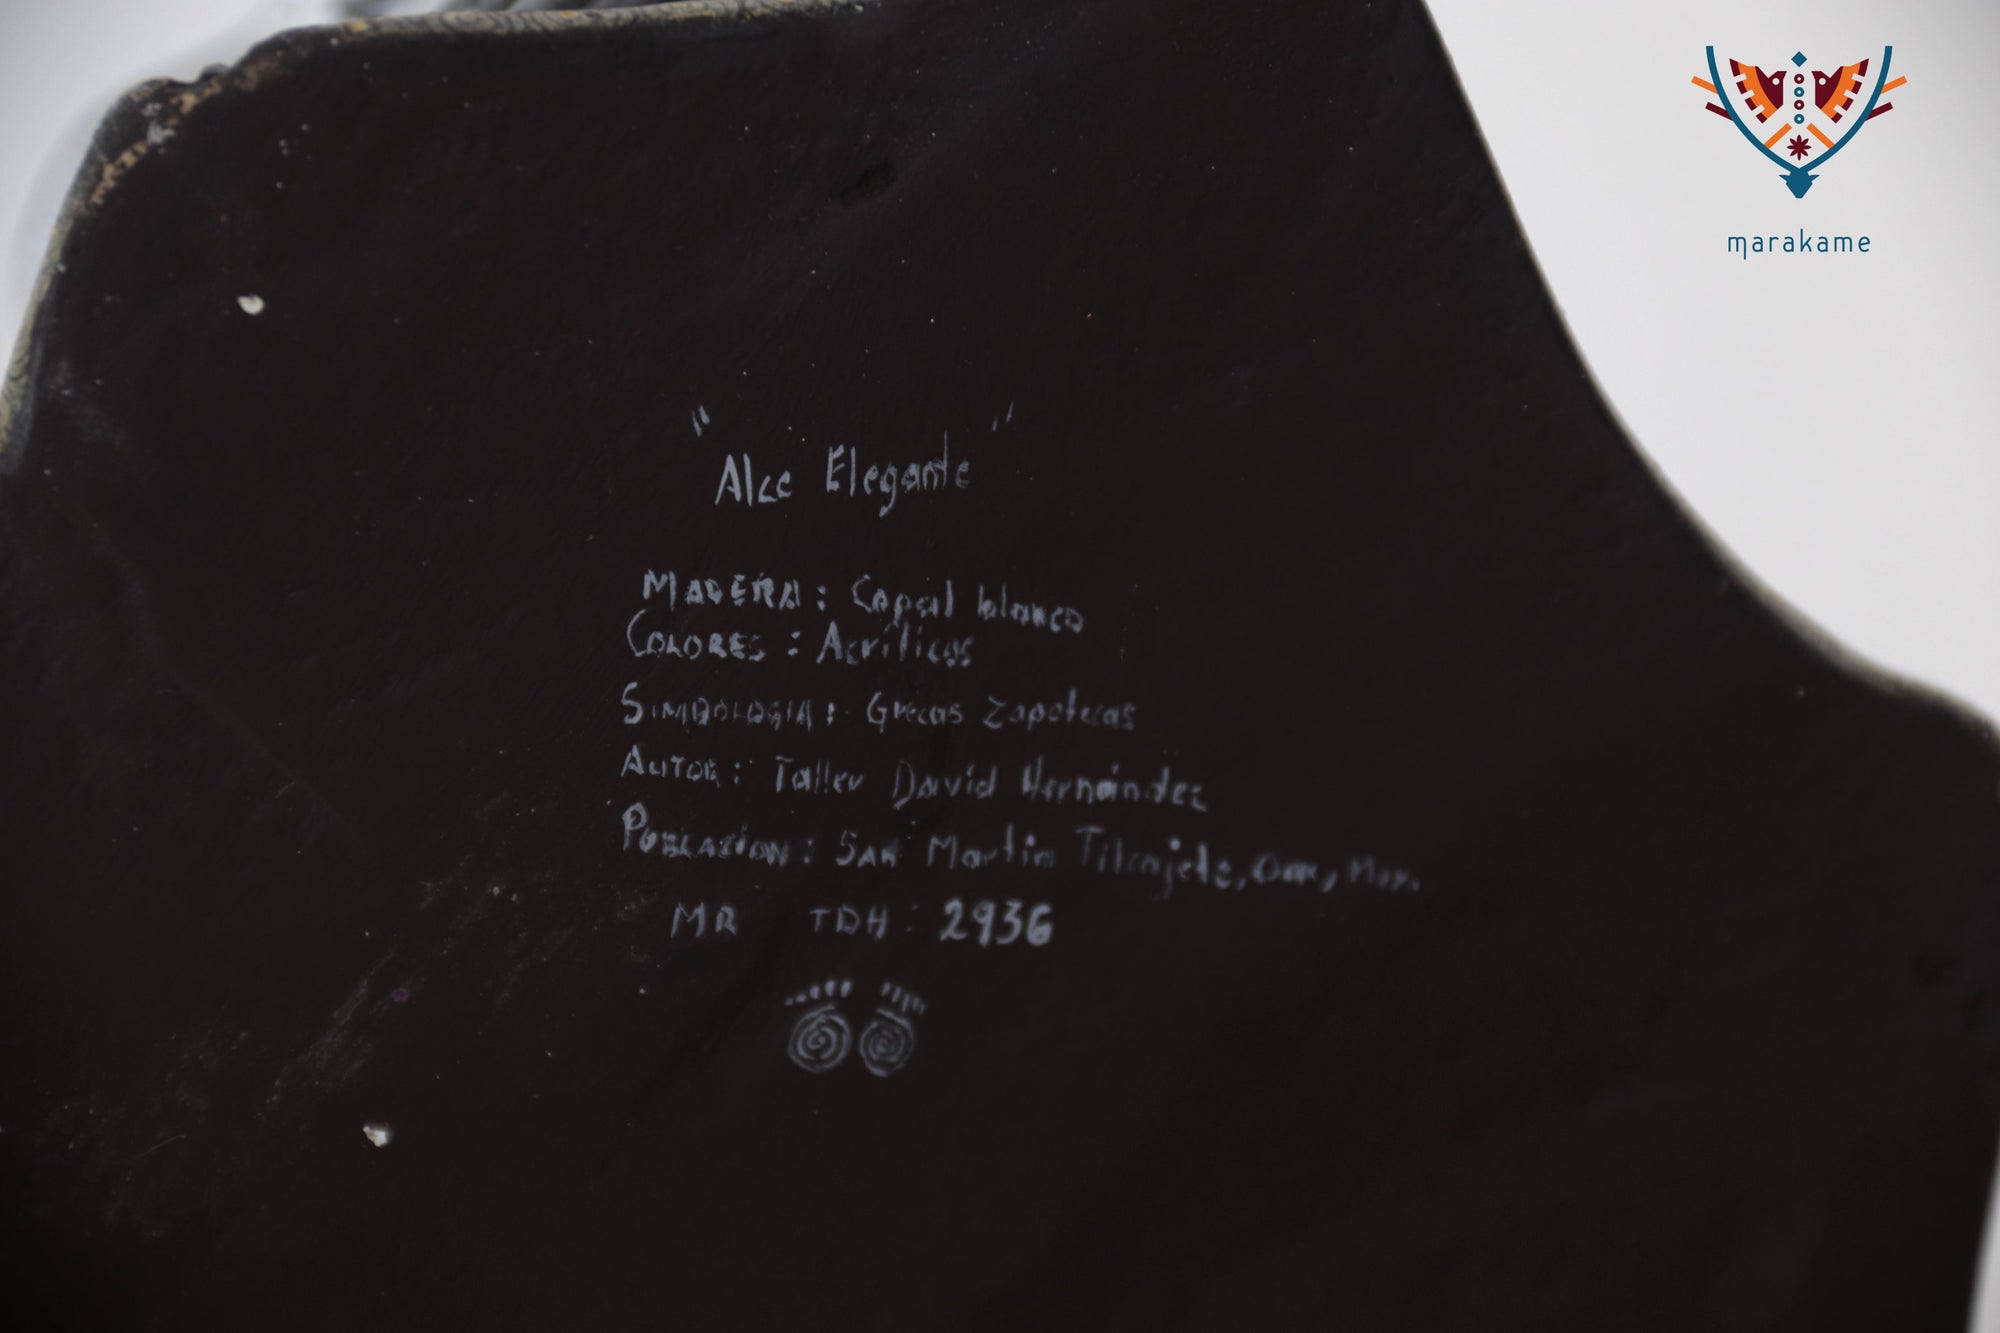 marakame
"Alce Elegante"
MADERA: Copal blanco
COLORES: Acrílicos
SIMBOLOGIA: Grecas Zapotecas
AUTOR: Taller David Hernández
POBLACION: San Martin Tilcajete, Oax, Mex.
MR TDH: 2936